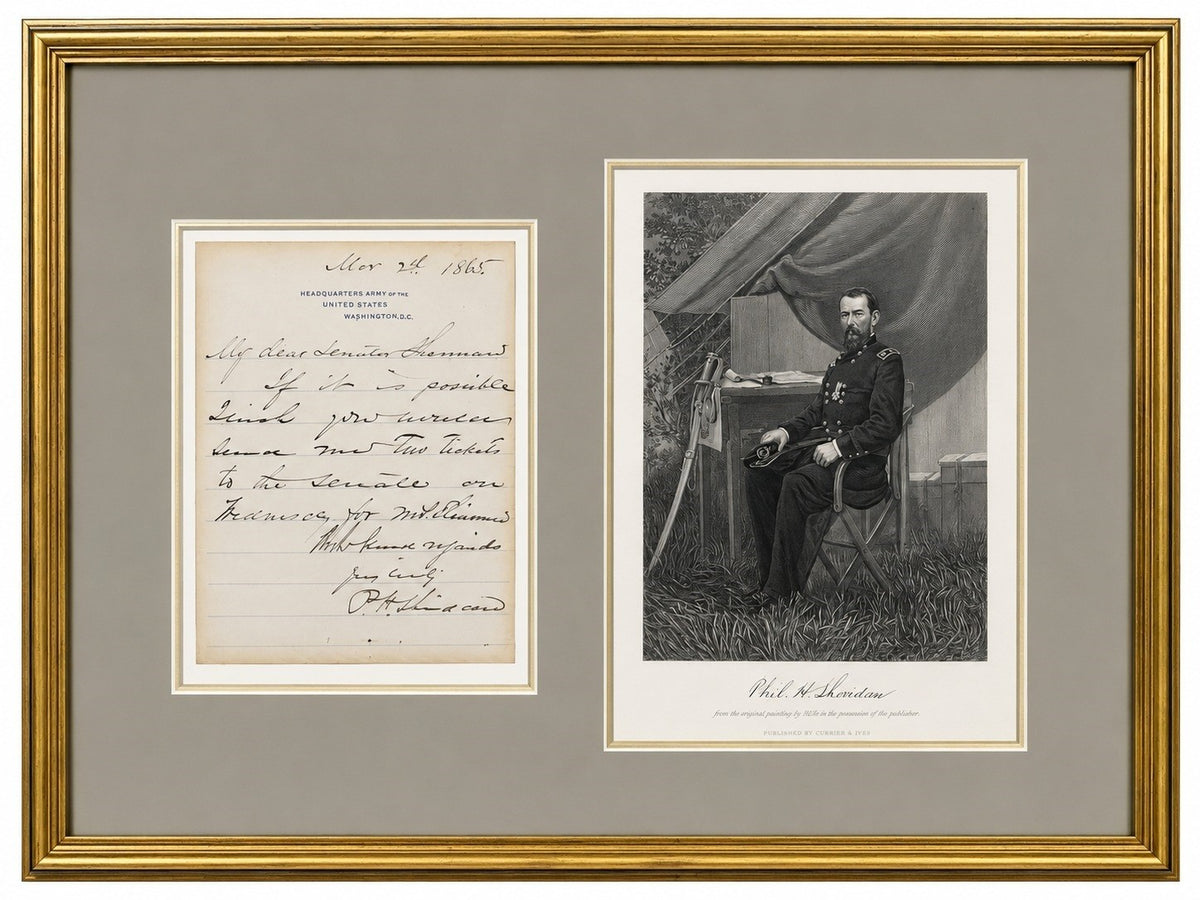 Mar 2d. 1865.
HEADQUARTERS ARMY OF THE
UNITED STATES
WASHINGTON, D.C.
My dear Senator Sherman
If it is possible
I wish you would
send me Two tickets
to the Senate on
for
kind regards
P. H. Sheridan
Phil. H. Sheridan
from the original painting by in the possession of the publisher.
PUBLISHED BY CURRIER & IVES